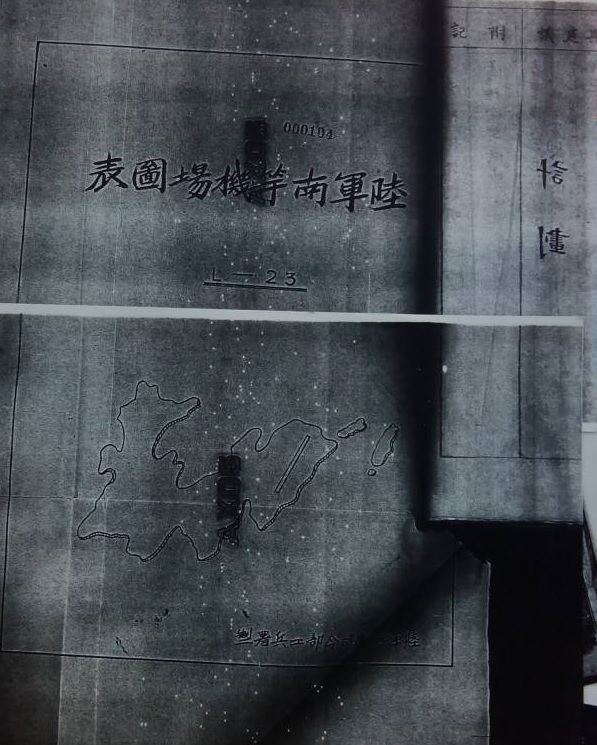 000104
陸軍南竿機場圖表
L—23
附記
計劃
陸軍 司令部工兵署製